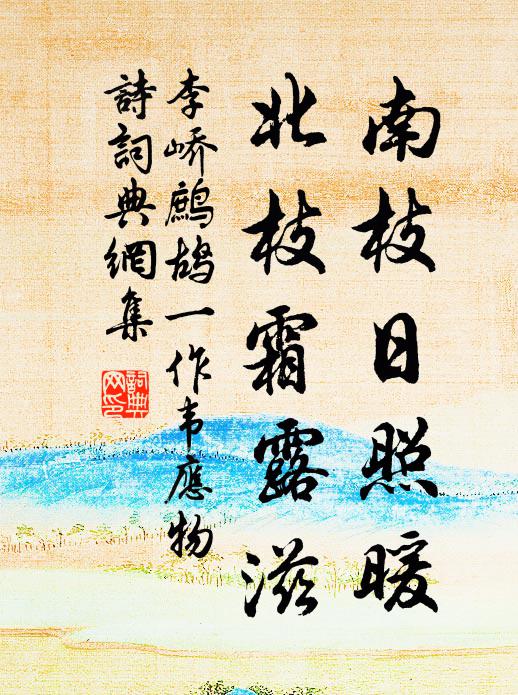 南枝日照暖
北枝霜露滋
李峤鷓鴣一作韦應物
詩詞典網集
詞典
网印